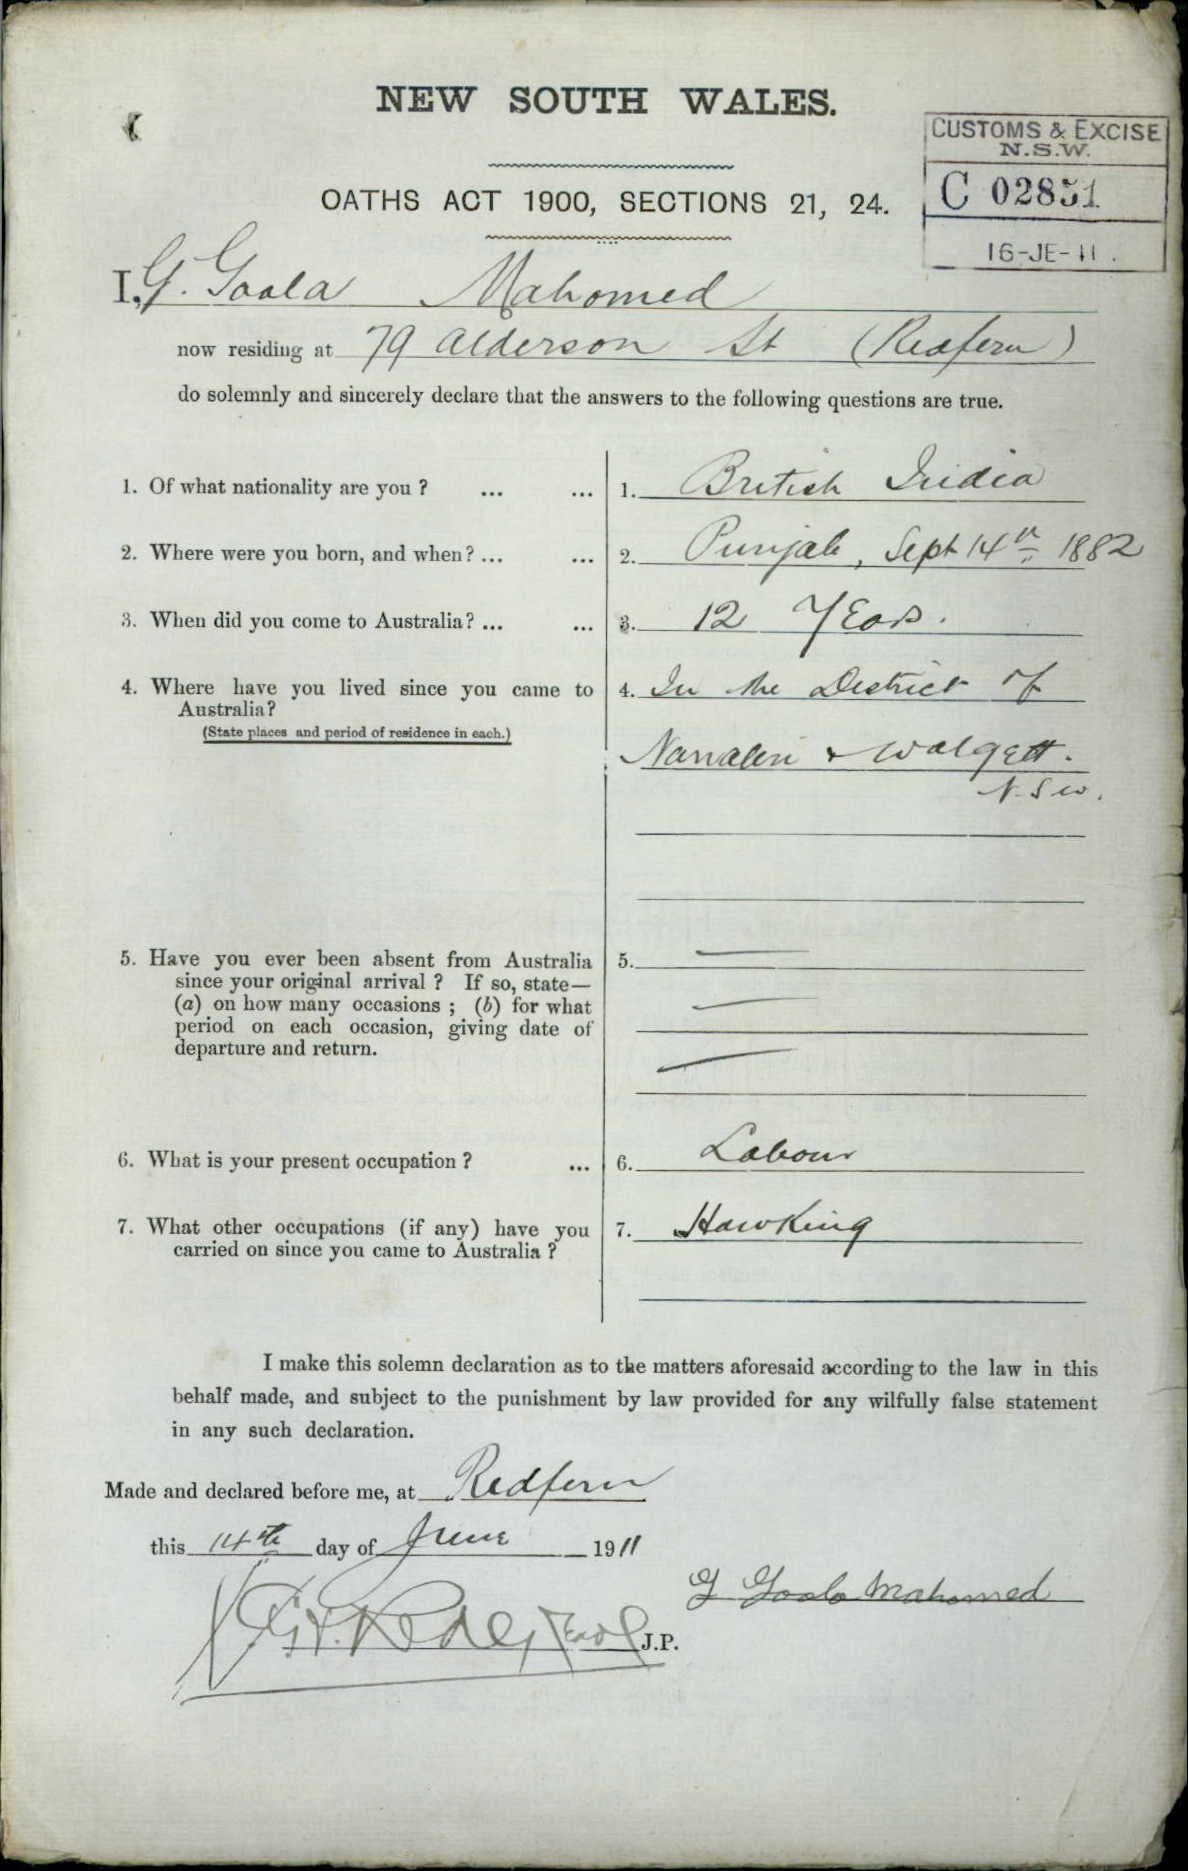 NEW SOUTH WALES.
CUSTOMS & EXCISE
N.S.W.
C 02851
16-JE-11.
OATHS ACT 1900, SECTIONS 21, 24.
I, G. Goola Mahomed
now residing at 79 Alderson St (Redfern)
do solemnly and sincerely declare that the answers to the following questions are true.
1. Of what nationality are you? ... ... 1. British India
2. Where were you born, and when? ... ... 2. Punjab, Sept 14th 1882
3. When did you come to Australia? ... ... 3. 12 Years.
4. Where have you lived since you came to 4. In the District of
Australia?
(State places and period of residence in each.)
Narrabri & Walgett.
N.S.W.
5. Have you ever been absent from Australia 5. —
since your original arrival? If so, state—
(a) on how many occasions; (b) for what —
period on each occasion, giving date of
departure and return. —
6. What is your present occupation? ... 6. Labour
7. What other occupations (if any) have you 7. Hawking
carried on since you came to Australia?
I make this solemn declaration as to the matters aforesaid according to the law in this
behalf made, and subject to the punishment by law provided for any wilfully false statement
in any such declaration.
Made and declared before me, at Redfern
this 14th day of June 1911
G Goola Mahomed
J.P.